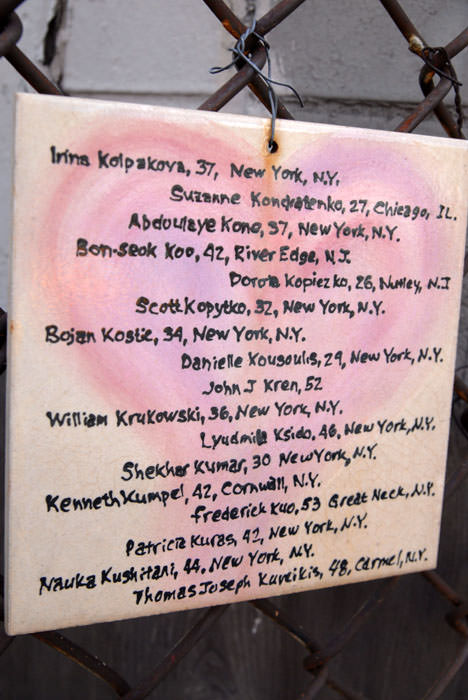 Irina Kolpakova, 37, New York, N.Y.
Suzanne Kondratenko, 27, Chicago, IL.
Abdoulaye Kone, 37, New York, N.Y.
Bon-seok Koo, 42, River Edge, N.J.
Dorota Kopiczko, 26, Nutley, N.J
Scott Kopytko, 32, New York, N.Y.
Bojan Kostic, 34, New York, N.Y.
Danielle Kousoulis, 29, New York, N.Y.
John J Kren, 52
William Krukowski, 36, New York, N.Y.
Lyudmila Ksido, 46, New York, N.Y.
Shekhar Kumar, 30 New York, N.Y.
Kenneth Kumpel, 42, Cornwall, N.Y.
Frederick Kuo, 53 Great Neck, N.Y.
Patricia Kuras, 42, New York, N.Y.
Nauka Kushitani, 44, New York, N.Y.
Thomas Joseph Kuveikis, 48, Carmel, N.Y.